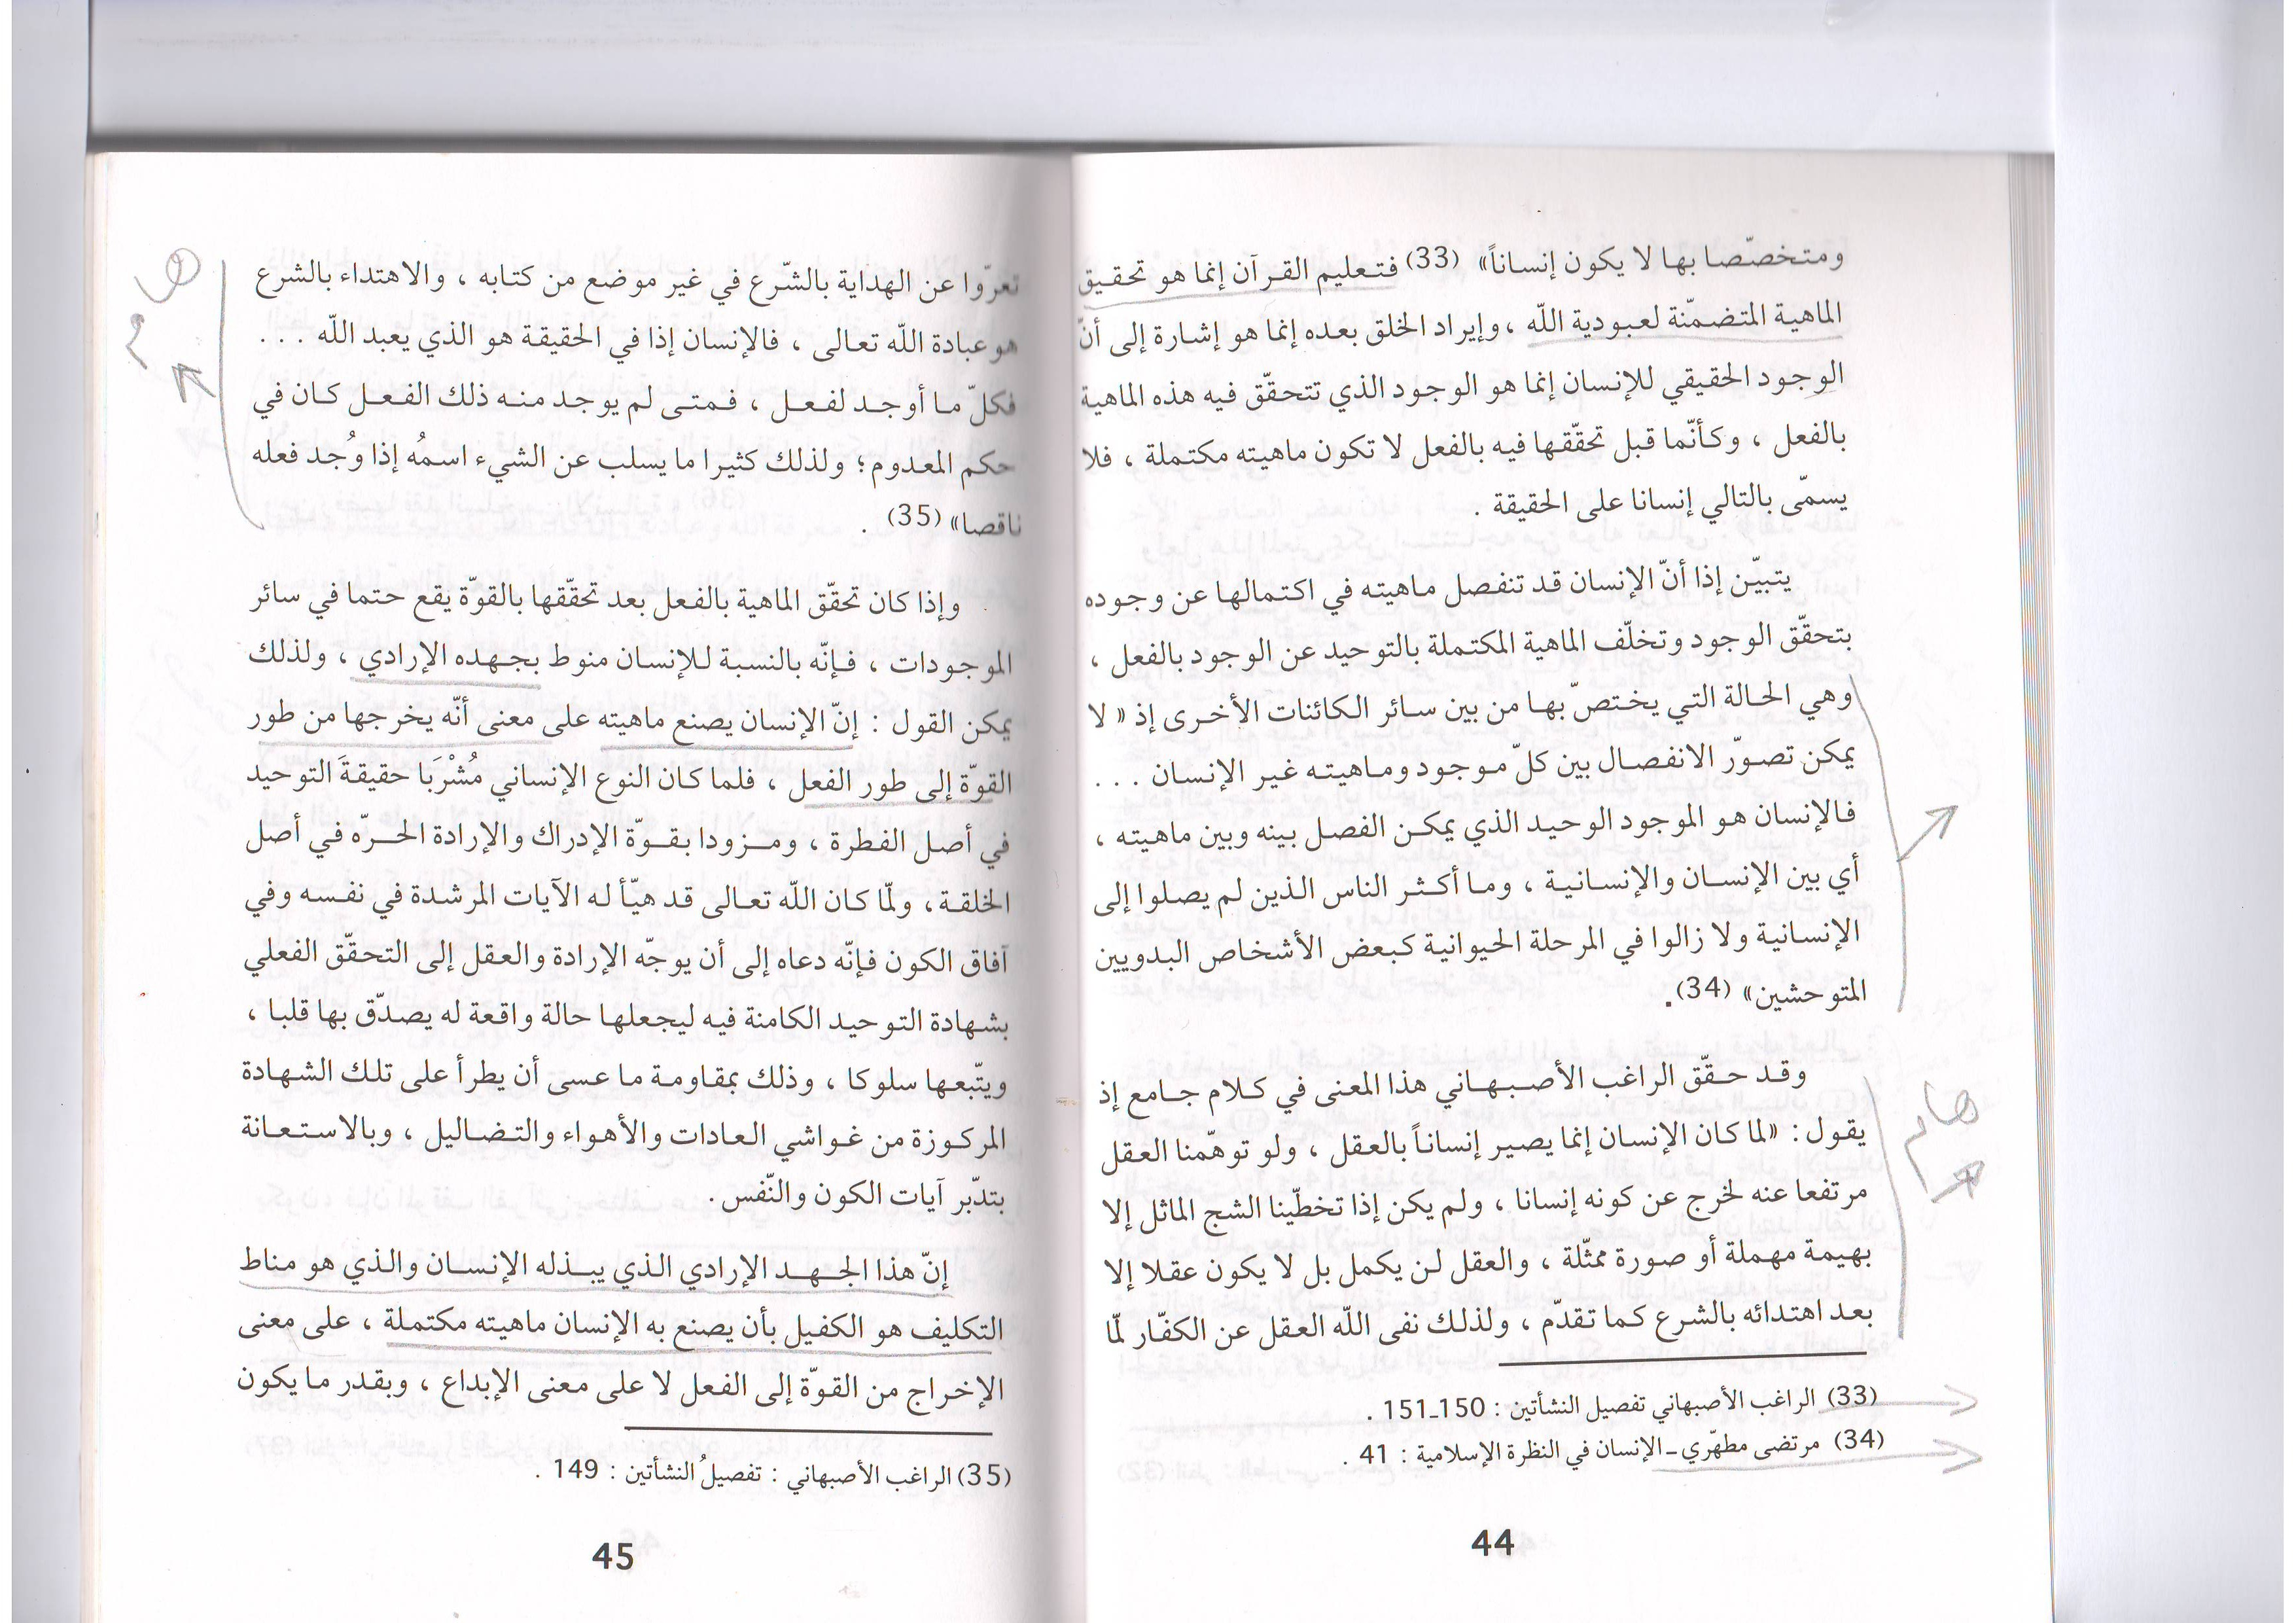 ومتخصّصا بها لا يكون إنساناً» (33) فتعليم القرآن إنما هو تحقيق
الماهية المتضمنّة لعبودية اللّه ، وإيراد الخلق بعده إنما هو إشارة إلى أنّ
الوجود الحقيقي للإنسان إنما هو الوجود الذي تتحقّق فيه هذه الماهية
بالفعل ، وكأنّما قبل تحقّقها فيه بالفعل لا تكون ماهيته مكتملة ، فلا
يسمّى بالتالي إنسانا على الحقيقة .
يتبيّن إذا أنّ الإنسان قد تنفصل ماهيته في اكتمالها عن وجوده
بتحقّق الوجود وتخلّف الماهية المكتملة بالتوحيد عن الوجود بالفعل ،
وهي الحالة التي يختصّ بها من بين سائر الكائنات الأخرى إذ « لا
يمكن تصوّر الانفصال بين كلّ موجود وماهيته غير الإنسان . . .
فالإنسان هو الموجود الوحيد الذي يمكن الفصل بينه وبين ماهيته ،
أي بين الإنسان والإنسانية ، وما أكثر الناس الذين لم يصلوا إلى
الإنسانية ولا زالوا في المرحلة الحيوانية كبعض الأشخاص البدويين
المتوحشين» (34).
وقد حقّق الراغب الأصبهاني هذا المعنى في كلام جامع إذ
يقول : «لما كان الإنسان إنما يصير إنساناً بالعقل ، ولو توهّمنا العقل
مرتفعا عنه لخرج عن كونه إنسانا ، ولم يكن إذا تخطّينا الشج الماثل إلا
بهيمة مهملة أو صورة ممثّلة ، والعقل لن يكمل بل لا يكون عقلا إلا
بعد اهتدائه بالشرع كما تقدّم ، ولذلك نفى اللّه العقل عن الكفّار لمّا
(33) الراغب الأصبهاني تفصيل النشأتين : 150ـ151 .
(34) مرتضى مطهّري ـ الإنسان في النظرة الإسلامية : 41 .
44
هام
تعرّوا عن الهداية بالشّرع في غير موضع من كتابه ، والاهتداء بالشرع
هو عبادة اللّه تعالى ، فالإنسان إذا في الحقيقة هو الذي يعبد اللّه . . .
فكلّ ما أوجد لفعل ، فمتى لم يوجد منه ذلك الفعل كان في
حكم المعدوم؛ ولذلك كثيرا ما يسلب عن الشيء اسمُه إذا وُجد فعله
ناقصا» (35) .
وإذا كان تحقّق الماهية بالفعل بعد تحقّقها بالقوّة يقع حتما في سائر
الموجودات ، فإنّه بالنسبة للإنسان منوط بجهده الإرادي ، ولذلك
يمكن القول : إنّ الإنسان يصنع ماهيته على معنى أنّه يخرجها من طور
القوّة إلى طور الفعل ، فلما كان النوع الإنساني مُشْرَبَا حقيقةَ التوحيد
في أصل الفطرة ، ومزودا بقوّة الإدراك والإرادة الحرّه في أصل
الخلقة، ولمّا كان اللّه تعالى قد هيّأ له الآيات المرشدة في نفسه وفي
آفاق الكون فإنّه دعاه إلى أن يوجّه الإرادة والعقل إلى التحقّق الفعلي
بشهادة التوحيد الكامنة فيه ليجعلها حالة واقعة له يصدّق بها قلبا ،
ويتّبعها سلوكا ، وذلك بمقاومة ما عسى أن يطرأ على تلك الشهادة
المركوزة من غواشي العادات والأهواء والتضاليل ، وبالاستعانة
بتدبّر آيات الكون والنّفس .
إنّ هذا الجهد الإرادي الذي يبذله الإنسان والذي هو مناط
التكليف هو الكفيل بأن يصنع به الإنسان ماهيته مكتملة ، على معنى
الإخراج من القوّة إلى الفعل لا على معنى الإبداع ، وبقدر ما يكون
(35) الراغب الأصبهاني : تفصيلُ النشأتين : 149 .
45